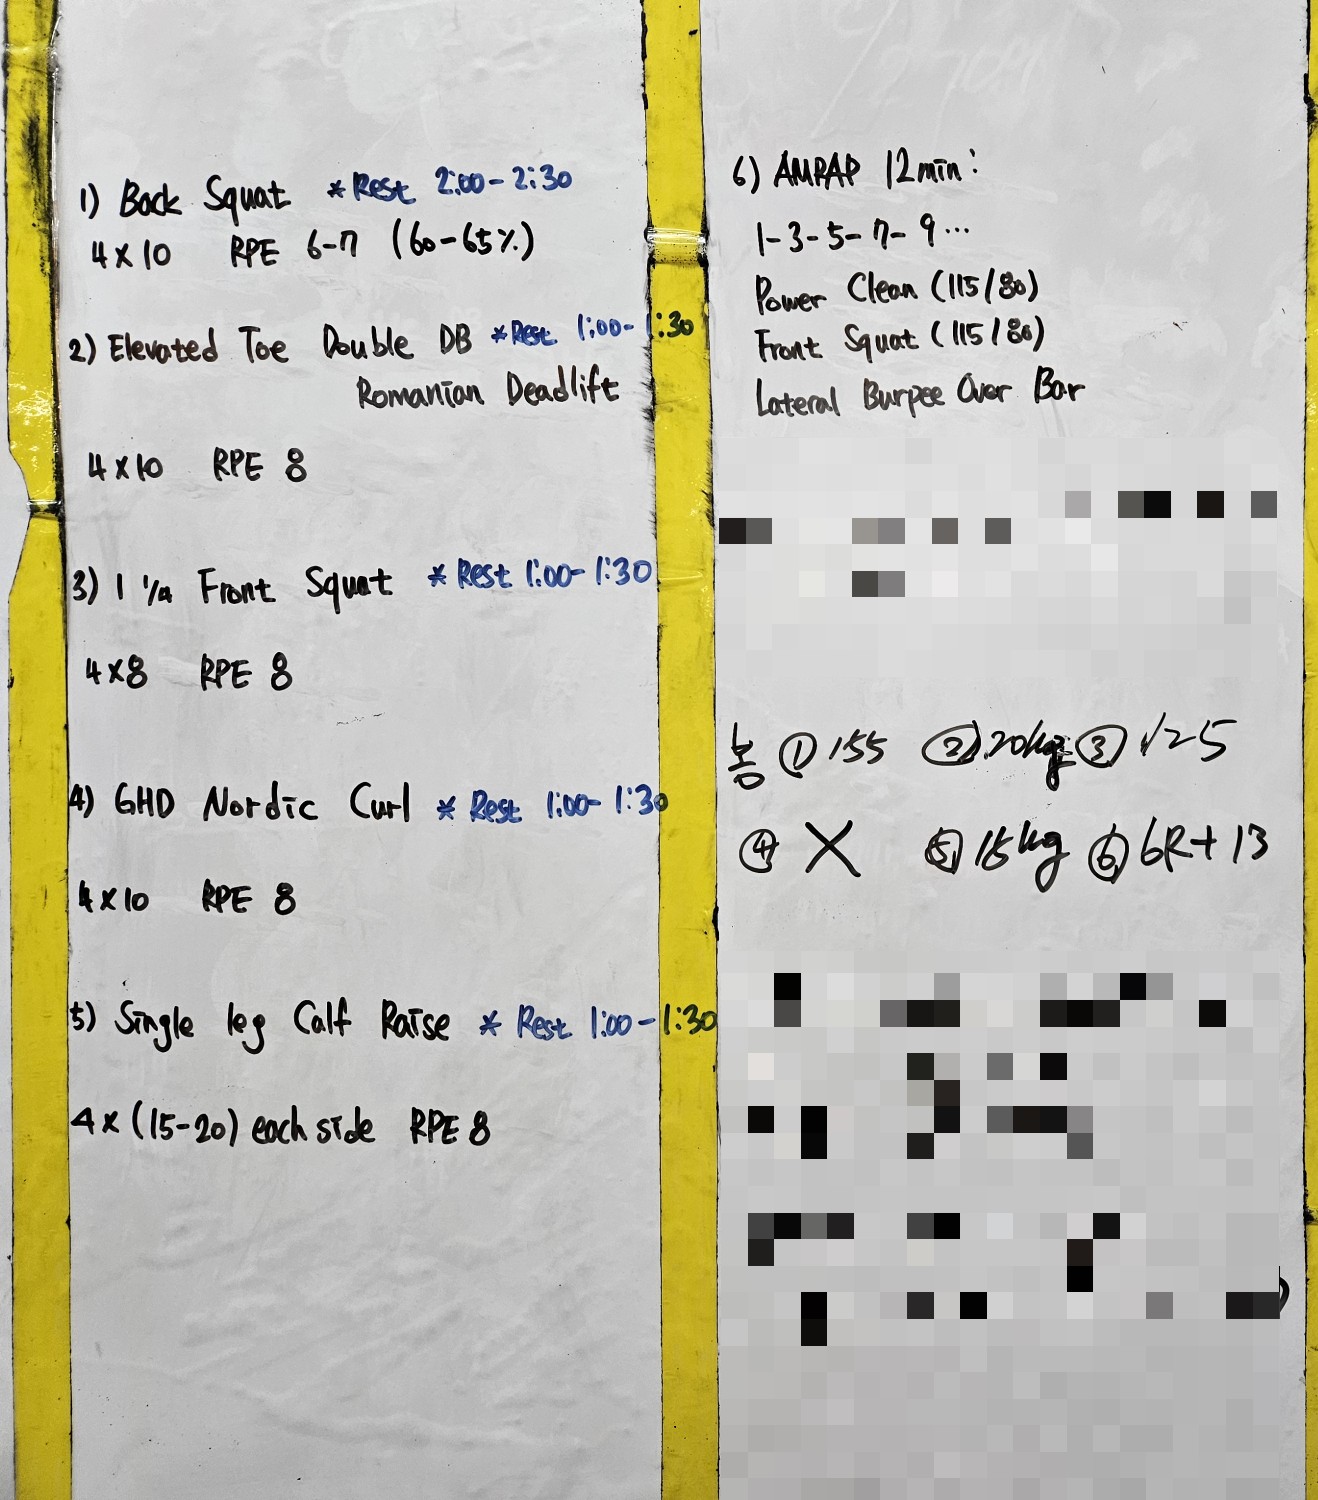 1) Back Squat *Rest 2:00-2:30
4x10 RPE 6-7 (60-65%)
2) Elevated Toe Double DB *Rest 1:00-1:30
Romanian Deadlift
4x10 RPE 8
3) 1 1/4 Front Squat *Rest 1:00-1:30
4x8 RPE 8
4) GHD Nordic Curl *Rest 1:00-1:30
4x10 RPE 8
5) Single leg Calf Raise *Rest 1:00-1:30
4x(15-20) each side RPE 8
6) AMRAP 12min:
1-3-5-7-9...
Power Clean (115/80)
Front Squat (115/80)
Lateral Burpee Over Bar
봉 ① 155 ② 20kg ③ 125
④ X ⑤ 15kg ⑥ 6R+13